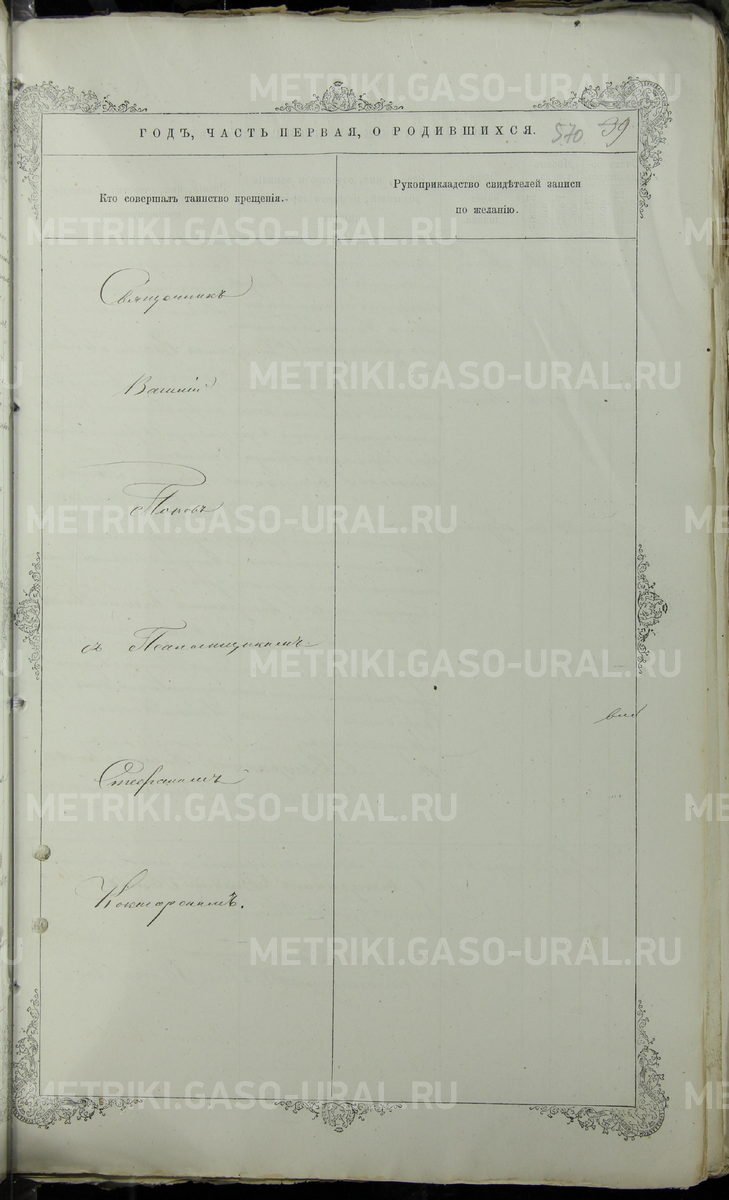 METRIKI.GASO-URAL.RU
ГОДЪ, ЧАСТЬ ПЕРВАЯ, О РОДИВШИХСЯ.
570 39
Кто совершалъ таинство крещенія.
Рукоприкладство свидѣтелей записи
по желанію.
METRIKI.GASO-URAL.RU
Священникъ
METRIKI.GASO-URAL.RU
Поповъ
METRIKI.GASO-URAL.RU
съ Псаломщикомъ
METRIKI.GASO-URAL.RU
METRIKI.GASO-URAL.RU
METRIKI.GASO-URAL.RU
METRIKI.GASO-URAL.RU